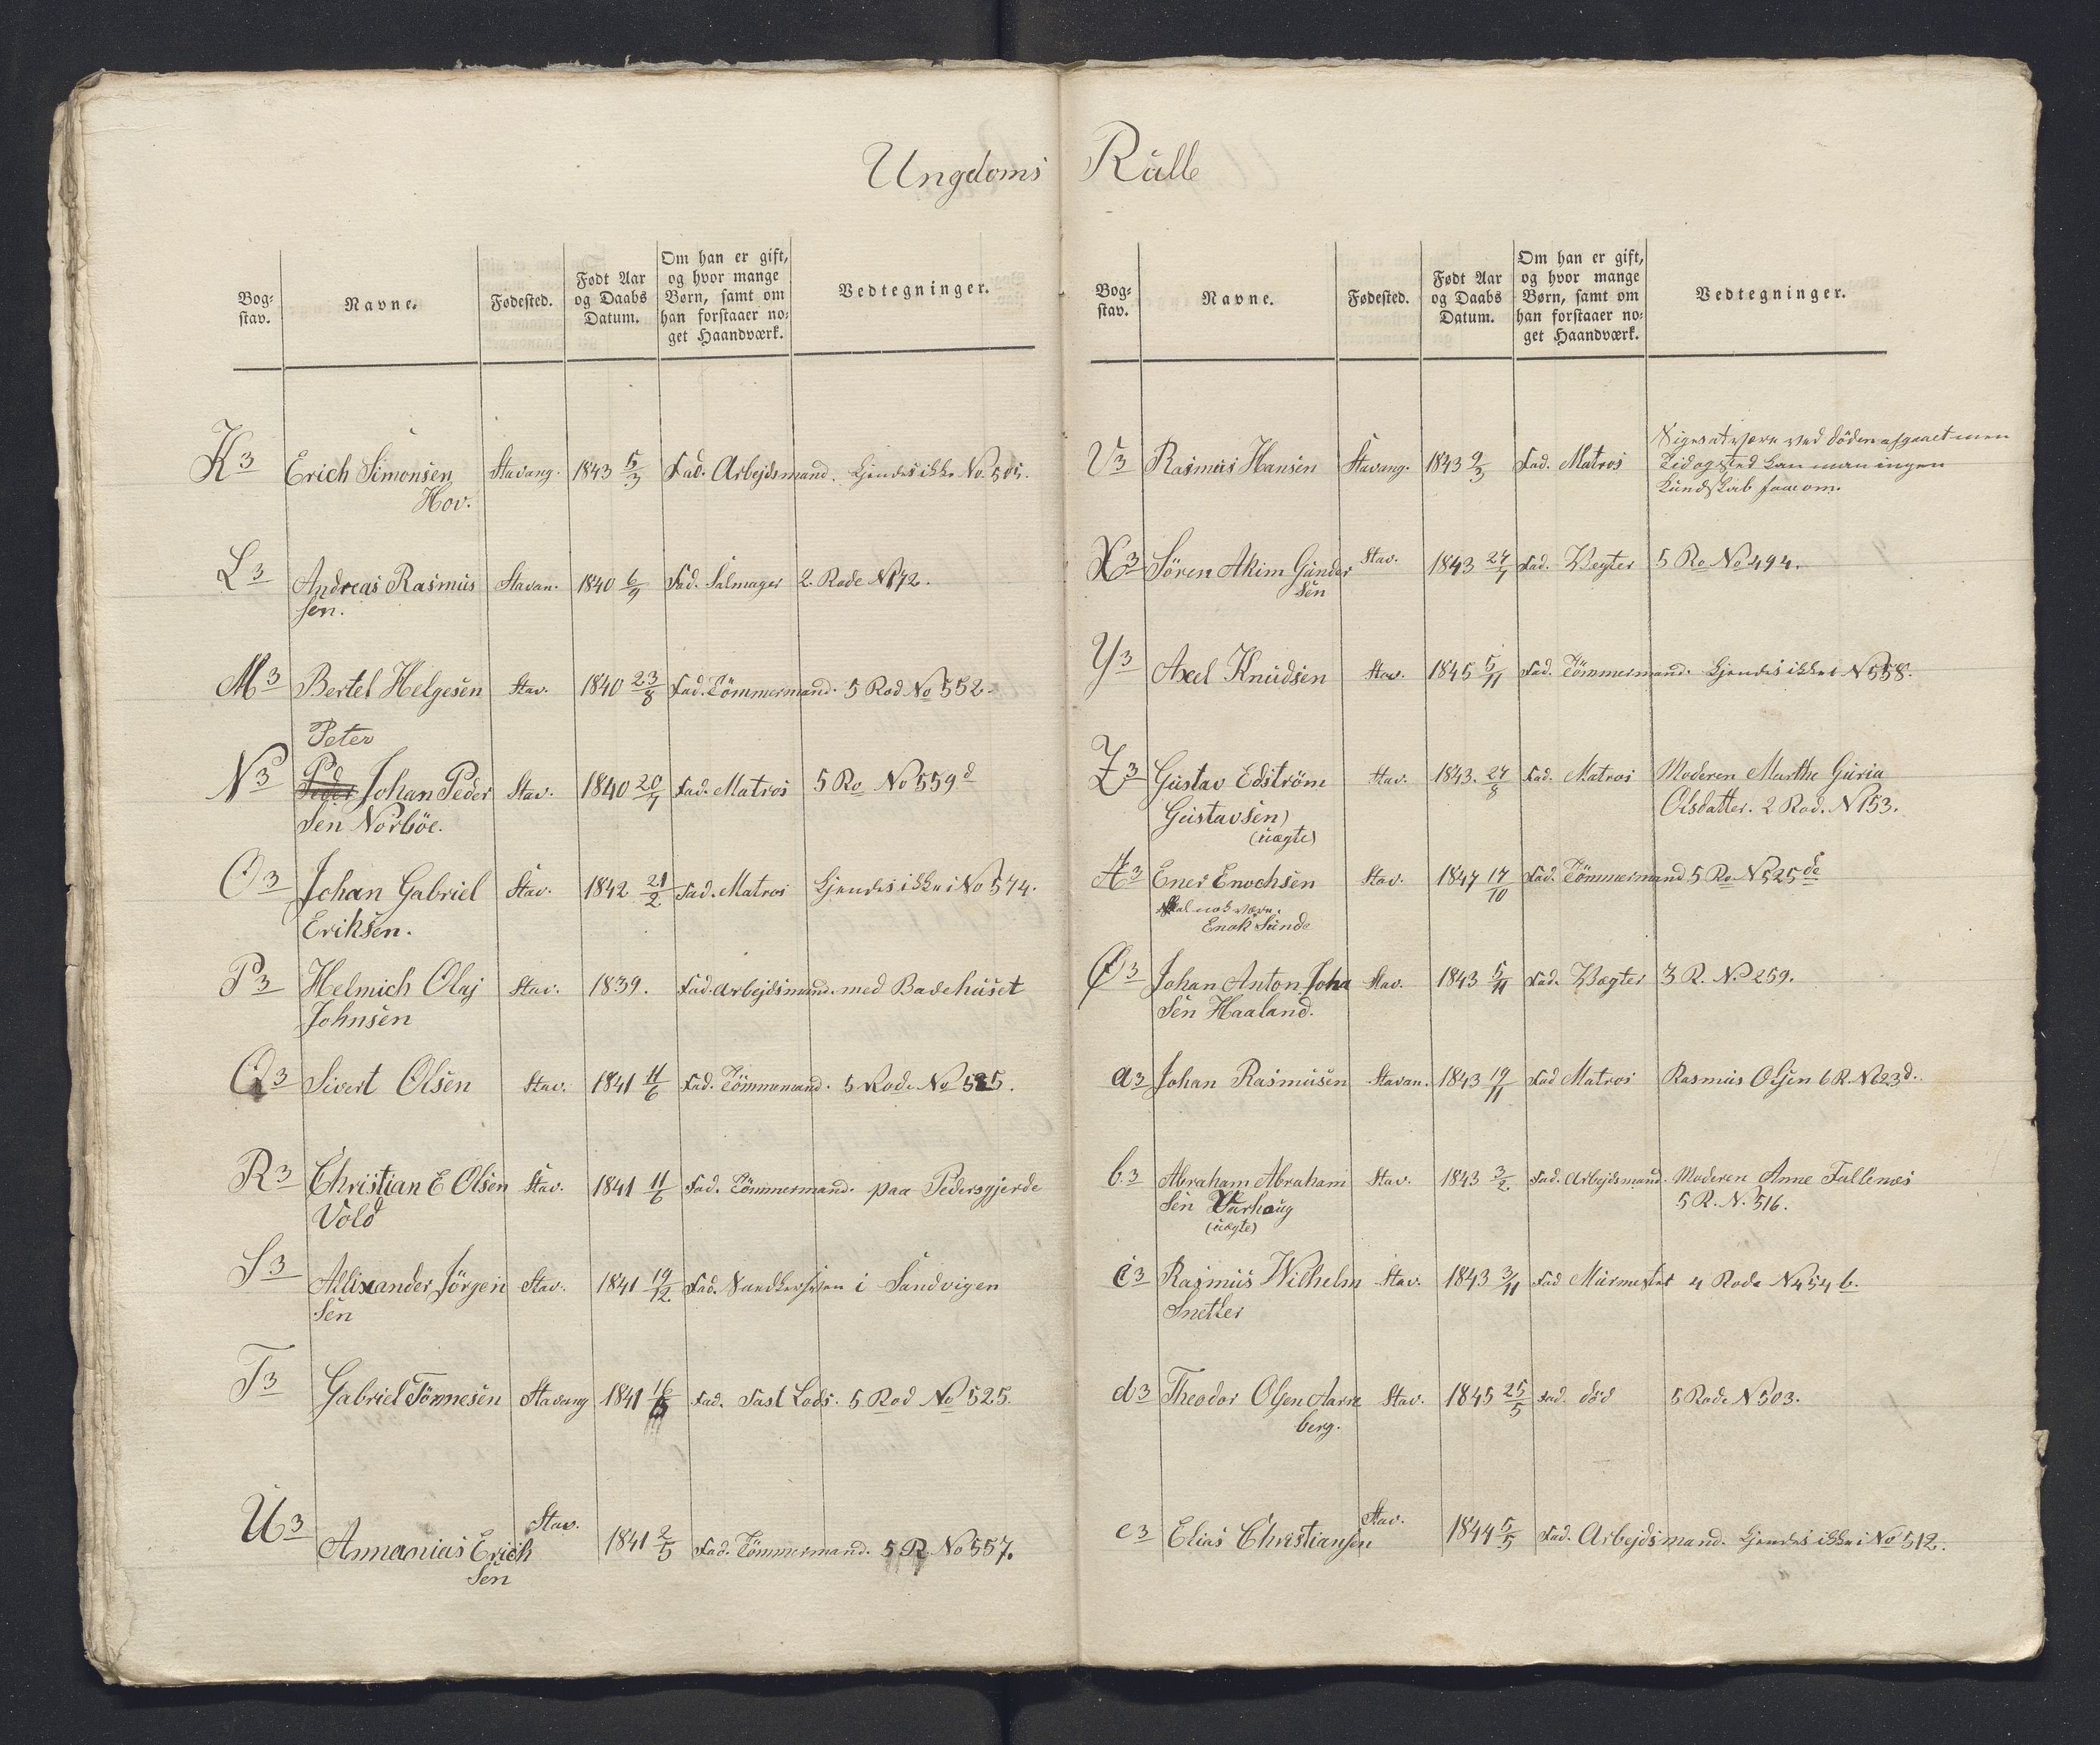 Ungdoms Rulle
Bog-
stav.
Navne.
Fødested.
Født Aar
og Daabs
Datum.
Om han er gift,
og hvor mange
Børn, samt om
han forstaaer no-
get Haandværk.
Vedtegninger.
K3 Erich Simonsen Stavang. 1843 5/3 Fad. Arbejdsmand. Kjendes ikke No. 505.
Hov.
L3 Andreas Rasmus Stavan. 1840 6/9 Fad. Salmager 2. Rode N 172.
sen.
M3 Bertel Helgesen Stav. 1840 23/8 Fad. Tömmermand. 5 Rod No 552.
Peter
N3 Peder Johan Peder Stav. 1840 20/7 Fad. Matros 5 Ro No 559 d
sen Norböe.
O3 Johan Gabriel Stav. 1842 21/2 Fad. Matros Kjendes ikke i No 574.
Eriksen.
P3 Helmich Olaj Stav. 1839. Fad. Arbejdsmand. med Badehuset
Johnsen
Q3 Sivert Olsen Stav. 1841 11/6 Fad. Tömmermand. 5 Rode No 525.
R3 Christian E Olsen Stav. 1841 11/6 Fad. Tömmermand. paa Pedersgjerde
Vold
S3 Allixander Jörgen Stav. 1841 19/12 Fad. i Sandvigen
sen
T3 Gabriel Tönnesen Stavang 1841 16/ Fad. Fast Lods. 5 Rod No 525.
U3 Annanias Erich Stav. 1841 2/5 Fad. Tömmermand. 5 R. No 557.
sen
Bog-
stav.
Navne.
Fødested.
Født Aar
og Daabs
Datum.
Om han er gift,
og hvor mange
Børn, samt om
han forstaaer no-
get Haandværk.
Vedtegninger.
V3 Rasmus Hansen Stavang. 1843 9/3 Fad. Matros Siges at være ved döden afgaaet men
Tid og sted kan man ingen
Kundskab faae om.
X3 Sören Akim Gunder Stav. 1843 27/7 Fad. Vægter 5 Ro No 494.
sen
Y3 Axel Knudsen Stav. 1845 5/11 Fad. Tömmermand. Kjendes ikke i N 558.
Z3 Gustav Edström Stav. 1843. 27/8 Fad. Matros Moderen Marthe Guria
Gustavsen) Olsdatter. 2 Rod. N 153.
(uægte)
Æ3 Ener Enochsen Stav. 1847 17/10 Fad. Tömmermand 5 Ro N 525 de
Skal nok være.
Enok Sunde
Ø3 Johan Anton Joha Stav. 1843 5/11 Fad. Vægter 3 R. N. 259.
sen Haaland.
a3 Johan Rasmusen Stavan. 1843 19/11 Fad Matros Rasmus Olsen 6 R. N 623 d.
b.3 Abraham Abraham Stav. 1843 3/2 Fad. Arbejdsmand. Moderen Anne Fallenæs
sen Varhoug 5 R. N. 516.
(uægte)
c3 Rasmus Wilhelm Stav. 1843 3/11 Fad Murmester 4 Rode N 454 b.
Snetler
d3 Theodor Olsen Aarre Stav. 1845 25/5 Fad. död 5 Rode N 503.
berg.
e3 Elias Christiansen Stav. 1844 5/5 Fad. Arbejdsmand. Kjendes ikke i No 512.